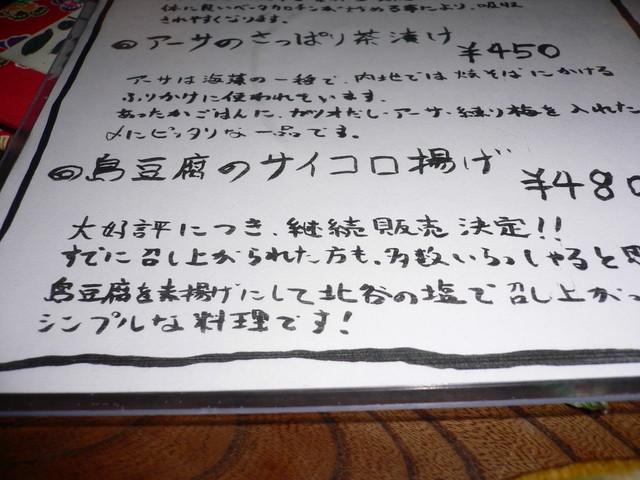 体に良いベータカロチン
により、吸収
されやすくなります。
◎アーサのさっぱり茶漬け ¥450
アーサは海藻の一種で、内地では焼そばにかける
ふりかけに使われています。
あったかごはんに、カツオだし・アーサ・練り梅を入れた
〆にピッタリな一品です。
◎島豆腐のサイコロ揚げ ¥480
大好評につき、継続販売決定!!
すでに召し上がられた方も、多数いらっしゃると思
島豆腐を素揚げにして北谷の塩で召し上がっ
シンプルな料理です!